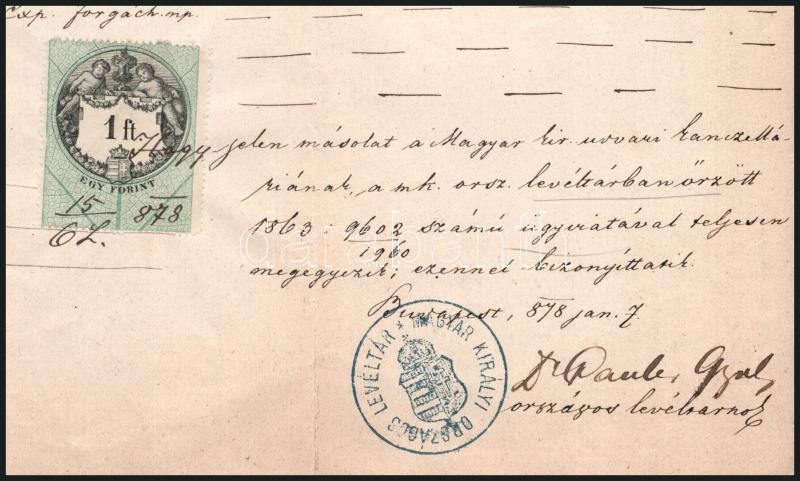 Exp. forgách mp.
1 ft.
EGY FORINT
15 878
6 Z.
Hogy jelen másolat a Magyar kir. udvari kanczellá-
riának, a mk. orsz. levéltárban őrzött
1863 9602 számú ügyiratával teljesen
1960
megegyezik; ezennel bizonyíttatik.
Budapest, 878 jan. 7.
Dr Pauler Gyula
országos levéltárnok
MAGYAR KIRÁLYI ORSZÁGOS LEVÉLTÁR
darabanth